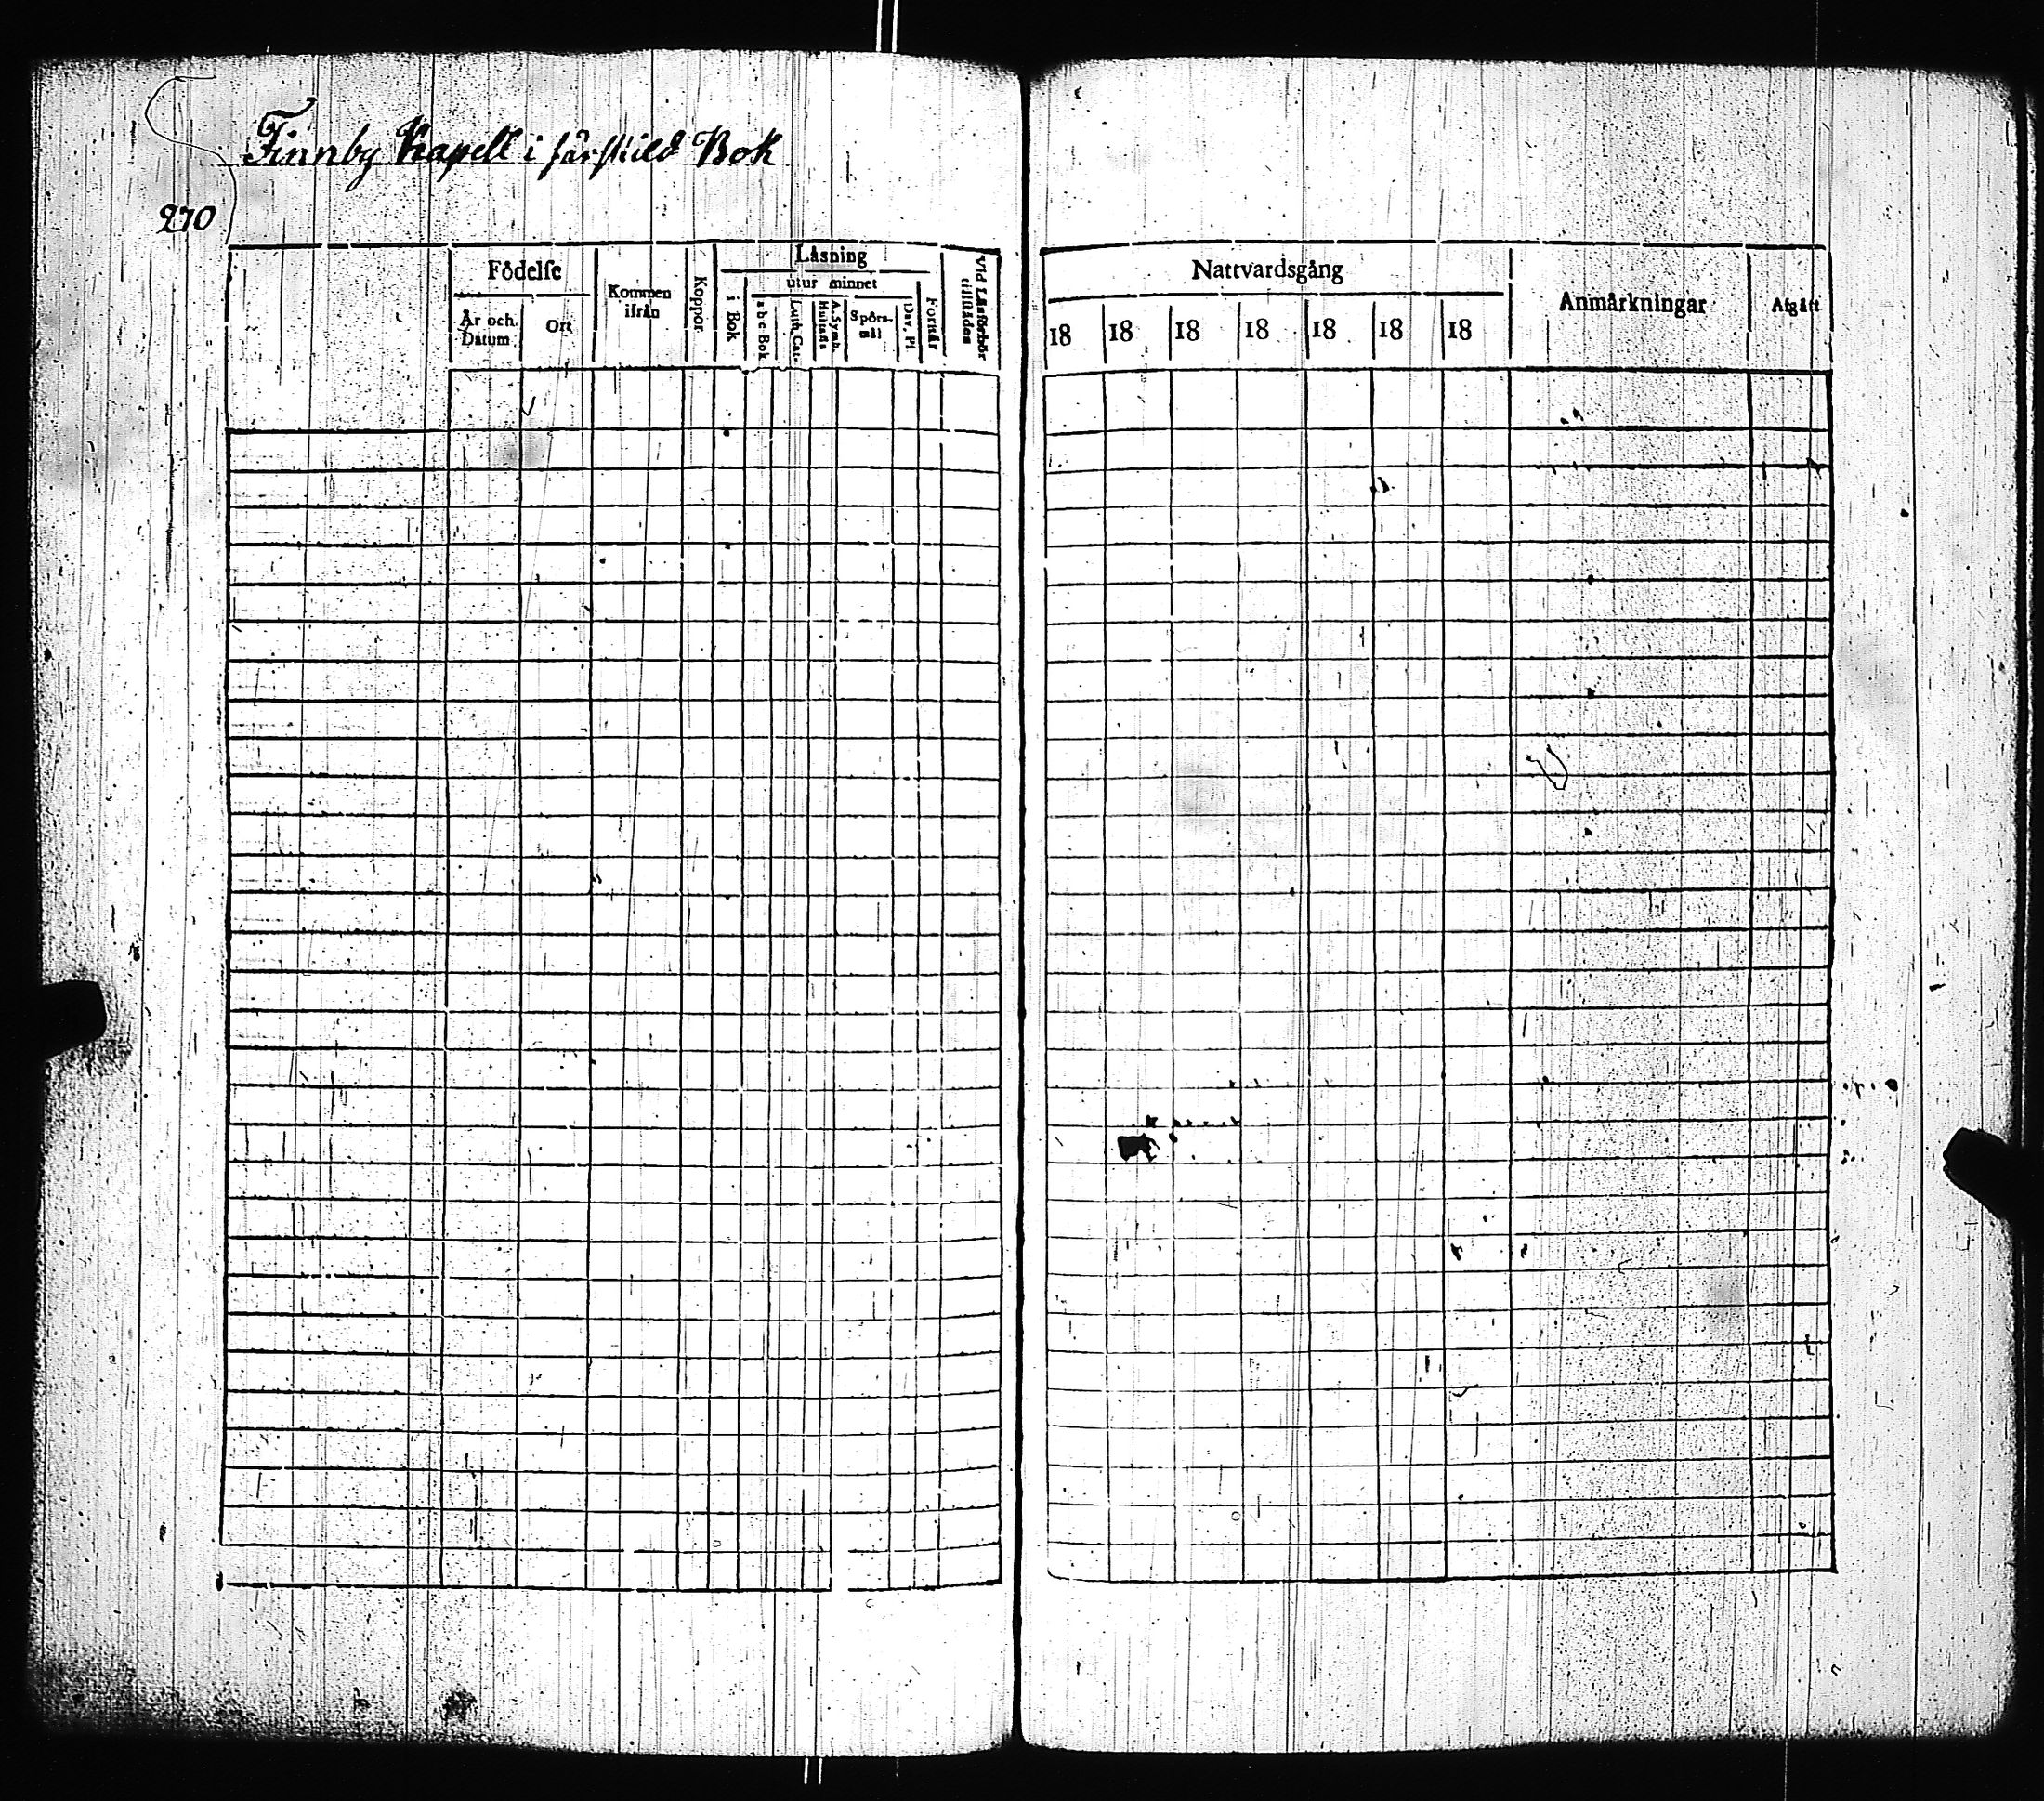 Finnby Kapell i särskild Bok
270
Födelse
År och Datum
Ort
Kommen ifrån
Koppor
Läsning
i Bok
utur minnet
a b c Bok
Luth. Cat.
A. Symb.
Hustafla
Spörsmål
Dav. Ps
Förstår
Vid Läsförhör tillstädes
Nattvardsgång
18 18 18 18 18 18 18
Anmärkningar
Afgått